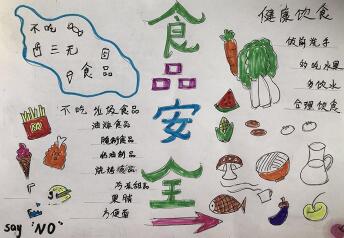 不吃
三无
食品
食品安全
健康饮食
饭前洗手
多吃水果
多饮水
合理饮食
不吃垃圾食品
油炸食品
腌制食品
奶油制品
烧烤食品
冷冻甜品
果脯
方便面
say "NO"